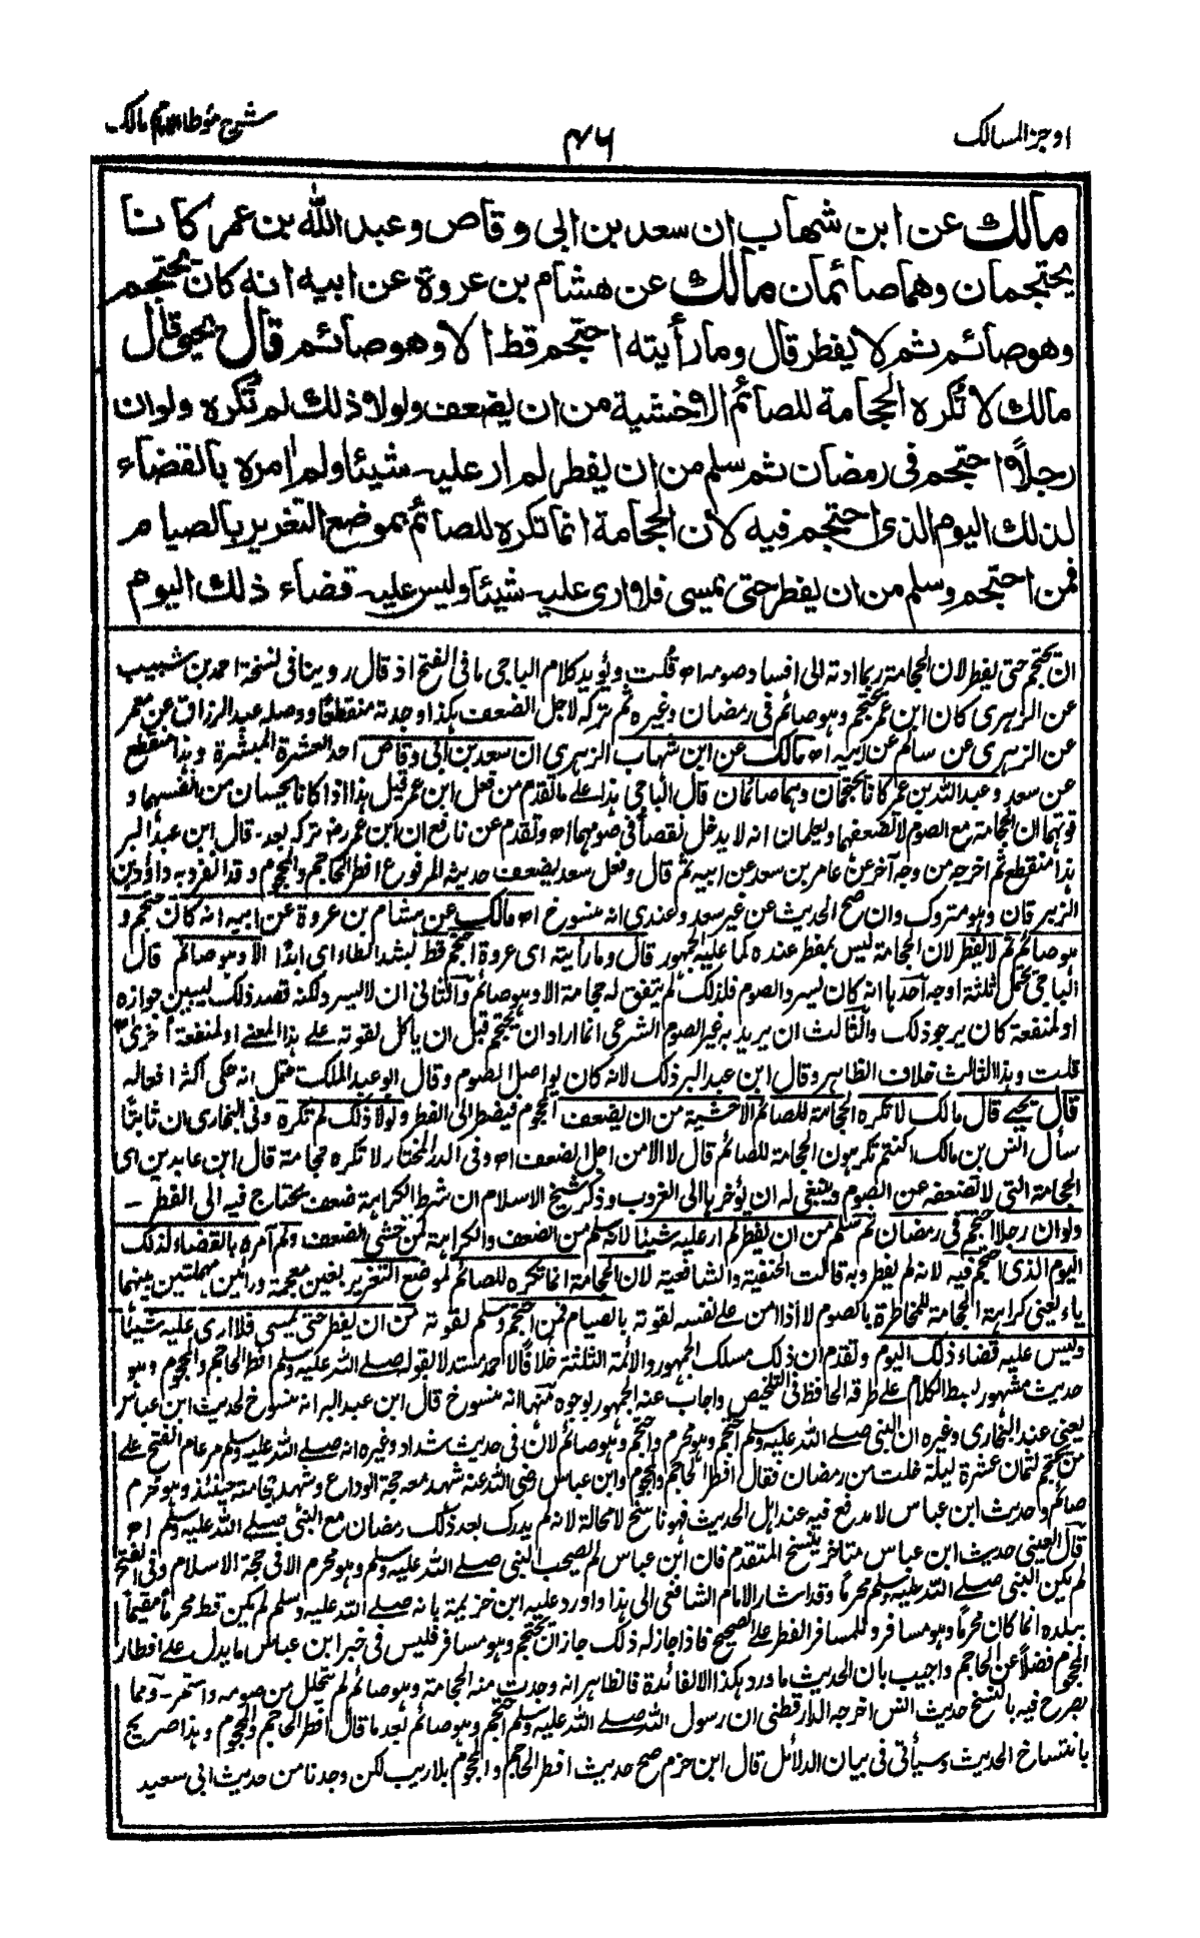 اوجز المسالك
٤٦
شرح مؤطا امام مالك
مالك عن ابن شهاب ان سعد بن ابى وقاص وعبد الله بن عمر كانا
يحتجمان وهما صائمان مالك عن هشام بن عروة عن ابيه انه كان يحتجم
وهو صائم ثم لا يفطر قال وما رأيته احتجم قط الا وهو صائم قال يحيى قال
مالك لا تكره الحجامة للصائم الا خشية من ان يضعف ولولا ذلك لم تكره ولو ان
رجلاً احتجم فى رمضان ثم سلم من ان يفطر لم ار عليه شيئا ولم اٰمره بالقضاء
لذلك اليوم الذى احتجم فيه لان الحجامة انما تكره للصائم بموضع التغرير بالصيام
فمن احتجم وسلم من ان يفطر حتى يمسى فلا ارى عليه شيئا وليس عليه قضاء ذلك اليوم
ان يحتجم حتى يفطر لان الحجامة ربما ادته الى افساد صومه اه قلت ويؤيد كلام الباجى ما فى الفتح اذ قال روينا فى نسخة احمد بن شبيب
عن الزهرى كان ابن عمر يحتجم وهو صائم فى رمضان وغيره ثم تركه لاجل الضعف هكذا وجدته منقطعًا ووصله عبد الرزاق عن معمر
عن الزهرى عن سالم عن ابيه اه مالك عن ابن شهاب الزهرى ان سعد بن ابى وقاص احد العشرة المبشرة وهذا منقطع
عن سعد وعبد الله بن عمر كانا يحتجمان وهما صائمان قال الباجى هذا على ما تقدم من فعل ابن عمر قبل هذا اذا كانا يحسان من انفسهما و
قوتهما ان الحجامة مع الصوم لا تضعفهما ويعلمان انه لا يدخل نقصاً فى صومهما اه وتقدم عن نافع ان ابن عمر رضـ تركه بعد۔ قال ابن عبد البر
هذا منقطع ثم اخرجه من وجه آخر عن عامر بن سعد عن ابيه ثم قال وفعل سعد يضعف حديثه المرفوع افطر الحاجم والمحجوم وقد انفرد به داؤد بن
الزبرقان وهو متروك وان صح الحديث عن غير سعد وعندى انه منسوخ اه مالك عن هشام بن عروة عن ابيه انه كان يحتجم و
هو صائم ثم لا يفطر لان الحجامة ليس بمفطر عنده كما عليه الجمهور قال وما رأيته اى عروة احتجم قط بشد الطاء اى ابدًا الا وهو صائم قال
الباجى يحتمل ثلثة اوجه احدها انه كان يسرد الصوم فلذلك لم يتفق له حجامة الا وهو صائم والثانى ان لا يسرد لكنه قصد ذلك ليبين جوازه
او لمنفعة كان يرجو ذلك والثالث ان يريد به غير الصوم الشرعى انما اراد ان يحتجم قبل ان ياكل لقوته على هذا المعنے او لمنفعة أخرى اه
قلت وهذا الثالث خلاف الظاهر وقال ابن عبد البر ذلك لانه كان يواصل الصوم وقال ابو عبد الملك يحتمل انه حكى اكثر افعاله
قال يحيے قال مالك لا تكره الحجامة للصائم الا خشية من ان يضعف المحجوم فيضطر الى الفطر ولولا ذلك لم تكره وفى البخارى ان ثابتًا
سأل انس بن مالك اكنتم تكرهون الحجامة للصائم قال لا الا من اجل الضعف اه وفى الدر المختار لا تكره حجامة قال ابن عابدين اى
الحجامة التى لا تضعفه عن الصوم وينبغى له ان يؤخرها الى الغروب وذكر شيخ الاسلام ان شرط الكراهة ضعف يحتاج فيه الى الفطر۔
ولو ان رجلا احتجم فى رمضان ثم سلم من ان يفطر لم ار عليه شيئا لانه سلم من الضعف والكراهة لمن خشى الضعف ولم آمره بالقضاء لذلك
اليوم الذى احتجم فيه لانه لم يفطر وبه قالت الحنفية والشافعية لان الحجامة انما تكره للصائم لموضع التغرير بغين معجمة ورائين مهملتين بينهما
ياء يعنى كراهة الحجامة للمخاطرة بالصوم لا اذا امن على نفسه لقوته بالصيام فمن احتجم وسلم لقوته من ان يفطر حتى يمسى فلا ارى عليه شيئا
وليس عليه قضاء ذلك اليوم وتقدم ان ذلك مسلك الجمهور والائمة الثلثة خلافًا لاحمد مستدلا بقوله صلے الله عليه وسلم افطر الحاجم والمحجوم وهو
حديث مشهور بسط الكلام على طرقه الحافظ فى التلخيص واجاب عنه الجمهور بوجوه منها انه منسوخ قال ابن عبد البر انه منسوخ لحديث ابن عباس
يعنى عند البخارى وغيره ان النبى صلے الله عليه وسلم احتجم وهو محرم واحتجم وهو صائم لان فى حديث شداد وغيره انه صلے الله عليه وسلم مر عام الفتح على
من يحتجم لثمان عشرة ليلة خلت من رمضان فقال افطر الحاجم والمحجوم وابن عباس رضى الله عنه شهد معه حجة الوداع وشهد حجامته حينئذ وهو محرم
صائم وحديث ابن عباس لا مدفع فيه عند اهل الحديث فهو ناسخ لا محالة لانه لم يدرك بعد ذلك رمضان مع النبى صلے الله عليه وسلم اه
قال العينى حديث ابن عباس متاخر ينسخ المتقدم فان ابن عباس لم يصحب النبى صلے الله عليه وسلم وهو محرم الا فى حجة الاسلام وفى الفتح
لم يكن النبى صلے الله عليه وسلم محرمًا وقد اشار الامام الشافعى الى هذا واورد عليه ابن خزيمة بانه صلے الله عليه وسلم لم يكن قط محرمًا مقيمًا
ببلده انما كان محرمًا وهو مسافر وللمسافر الفطر على الصحيح فاذا جاز له ذلك جاز ان يحتجم وهو مسافر فليس فى خبر ابن عباس ما يدل على افطار
المحجوم فضلاً عن الحاجم واجيب بان الحديث ما ورد هكذا الا لفائدة فالظاهر انه وجدت منه الحجامة وهو صائم لم يتحلل من صومه واستمر۔ ومما
يصرح فيه بالنسخ حديث انس اخرجه الدارقطنى ان رسول الله صلے الله عليه وسلم احتجم وهو صائم بعد ما قال افطر الحاجم والمحجوم وهذا صريح
بانتساخ الحديث وسيأتى فى بيان الدلائل قال ابن حزم صح حديث افطر الحاجم والمحجوم بلا ريب لكن وجدنا من حديث ابى سعيد